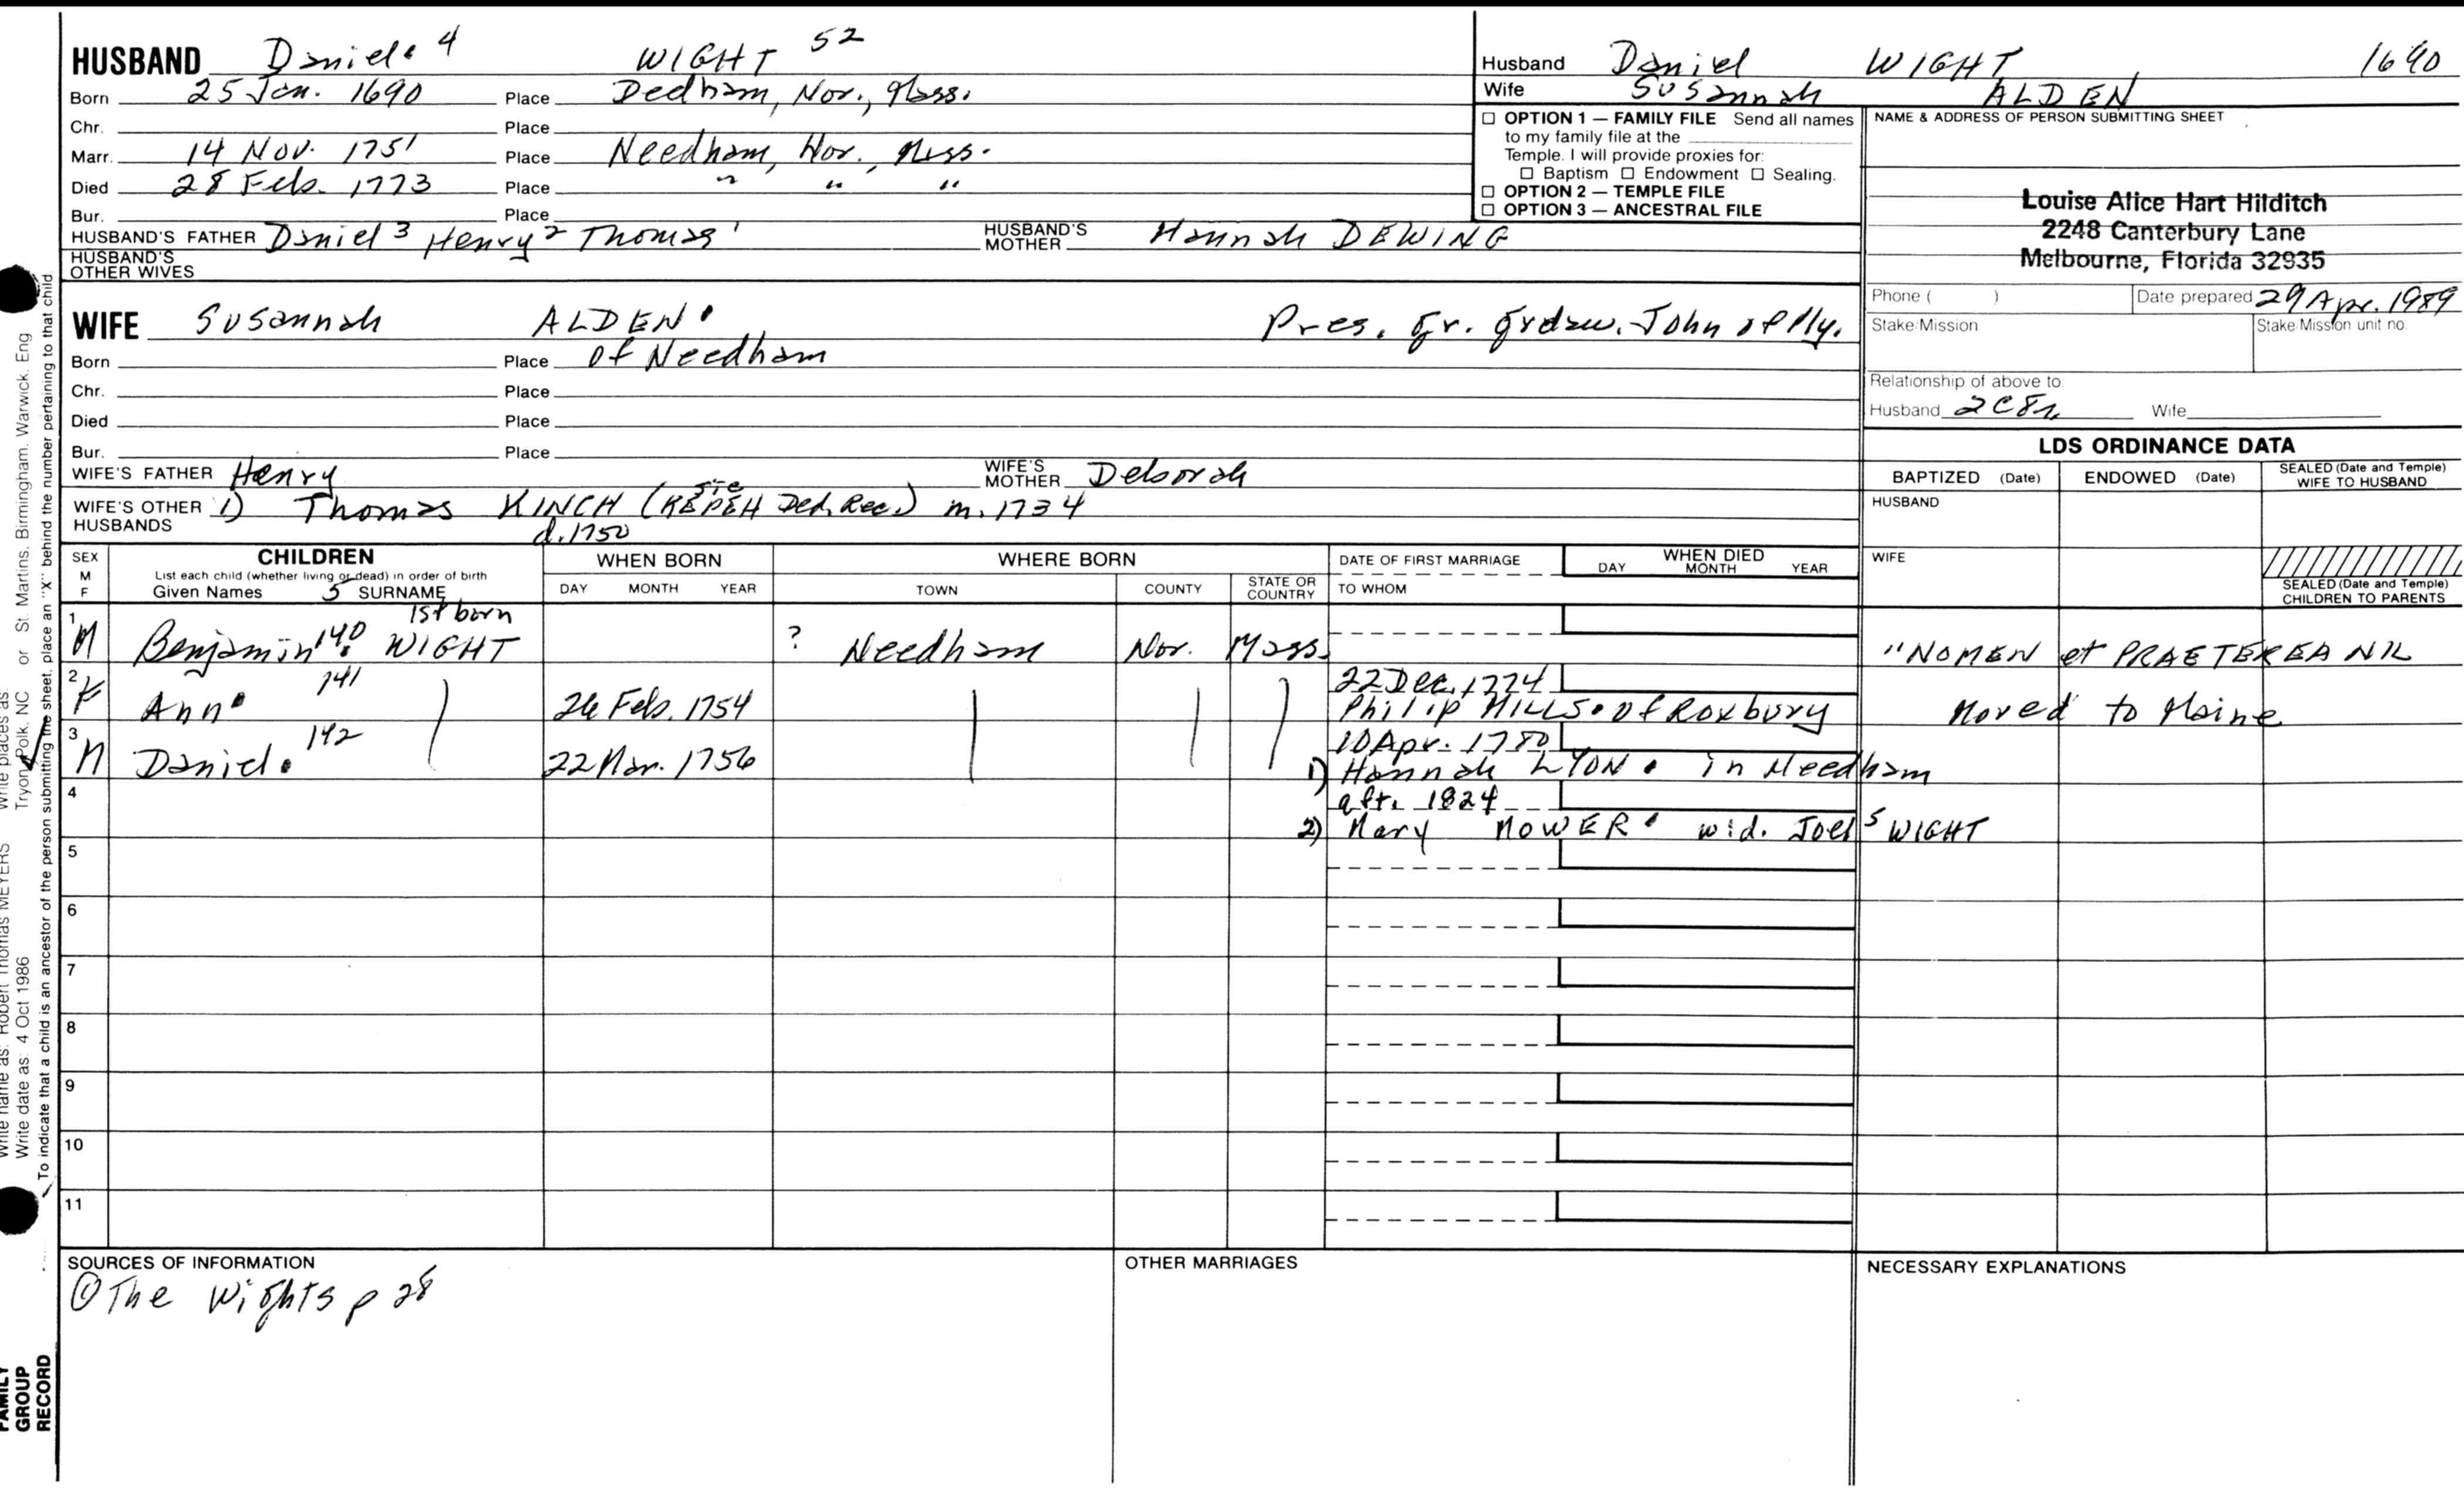 HUSBAND Daniel 4 WIGHT 52
Born 25 Jan. 1690 Place Dedham, Nor., Mass.
Chr. Place
Marr. 14 Nov. 1751 Place Needham, Nor., Mass.
Died 28 Feb. 1773 Place " " "
Bur. Place
HUSBAND'S FATHER Daniel 3 Henry 2 Thomas 1 HUSBAND'S MOTHER Hannah DEWING
HUSBAND'S OTHER WIVES
WIFE Susannah ALDEN Pres. gr. grdau. John of Ply.
Born Place of Needham
Chr. Place
Died Place
Bur. Place
WIFE'S FATHER Henry WIFE'S MOTHER Deborah
WIFE'S OTHER HUSBANDS 1) Thomas KINCH (KEPEH sic Ded. Rec.) m. 1734
d. 1750
Husband Daniel WIGHT 1690
Wife Susannah ALDEN
☐ OPTION 1 — FAMILY FILE Send all names
to my family file at the
Temple. I will provide proxies for:
☐ Baptism ☐ Endowment ☐ Sealing.
☐ OPTION 2 — TEMPLE FILE
☐ OPTION 3 — ANCESTRAL FILE
NAME & ADDRESS OF PERSON SUBMITTING SHEET
Louise Alice Hart Hilditch
2248 Canterbury Lane
Melbourne, Florida 32935
Phone ( ) Date prepared 29 Apr. 1989
Stake/Mission Stake/Mission unit no.
Relationship of above to
Husband 2C8r Wife
LDS ORDINANCE DATA
BAPTIZED (Date) ENDOWED (Date) SEALED (Date and Temple) WIFE TO HUSBAND
HUSBAND
WIFE
SEALED (Date and Temple) CHILDREN TO PARENTS
SEX M F
CHILDREN
List each child (whether living or dead) in order of birth
Given Names 5 SURNAME
WHEN BORN
DAY MONTH YEAR
WHERE BORN
TOWN COUNTY STATE OR COUNTRY
DATE OF FIRST MARRIAGE
TO WHOM
WHEN DIED
DAY MONTH YEAR
1st born
1 M Benjamin 140 WIGHT ? Needham Nor. Mass. "NOMEN et PRAETEREA NIL
22 Dec. 1774
2 F Ann 141 26 Feb. 1754 Philip MILLS of Roxbury Moved to Maine
10 Apr. 1780
3 M Daniel 142 22 Mar. 1756 1) Hannah LYON in Needham
4 aft. 1824
2) Mary MOWER wid. Joel 5 WIGHT
5
6
7
8
9
10
11
SOURCES OF INFORMATION
① The Wights p 28
OTHER MARRIAGES
NECESSARY EXPLANATIONS
To indicate that a child is an ancestor of the person submitting the sheet, place an "X" behind the number pertaining to that child
Write date as: 4 Oct 1986 Tryon, Polk, NC or St. Martins, Birmingham, Warwick, Eng
Write name as: Robert Thomas MEYERS Write places as:
FAMILY
GROUP
RECORD